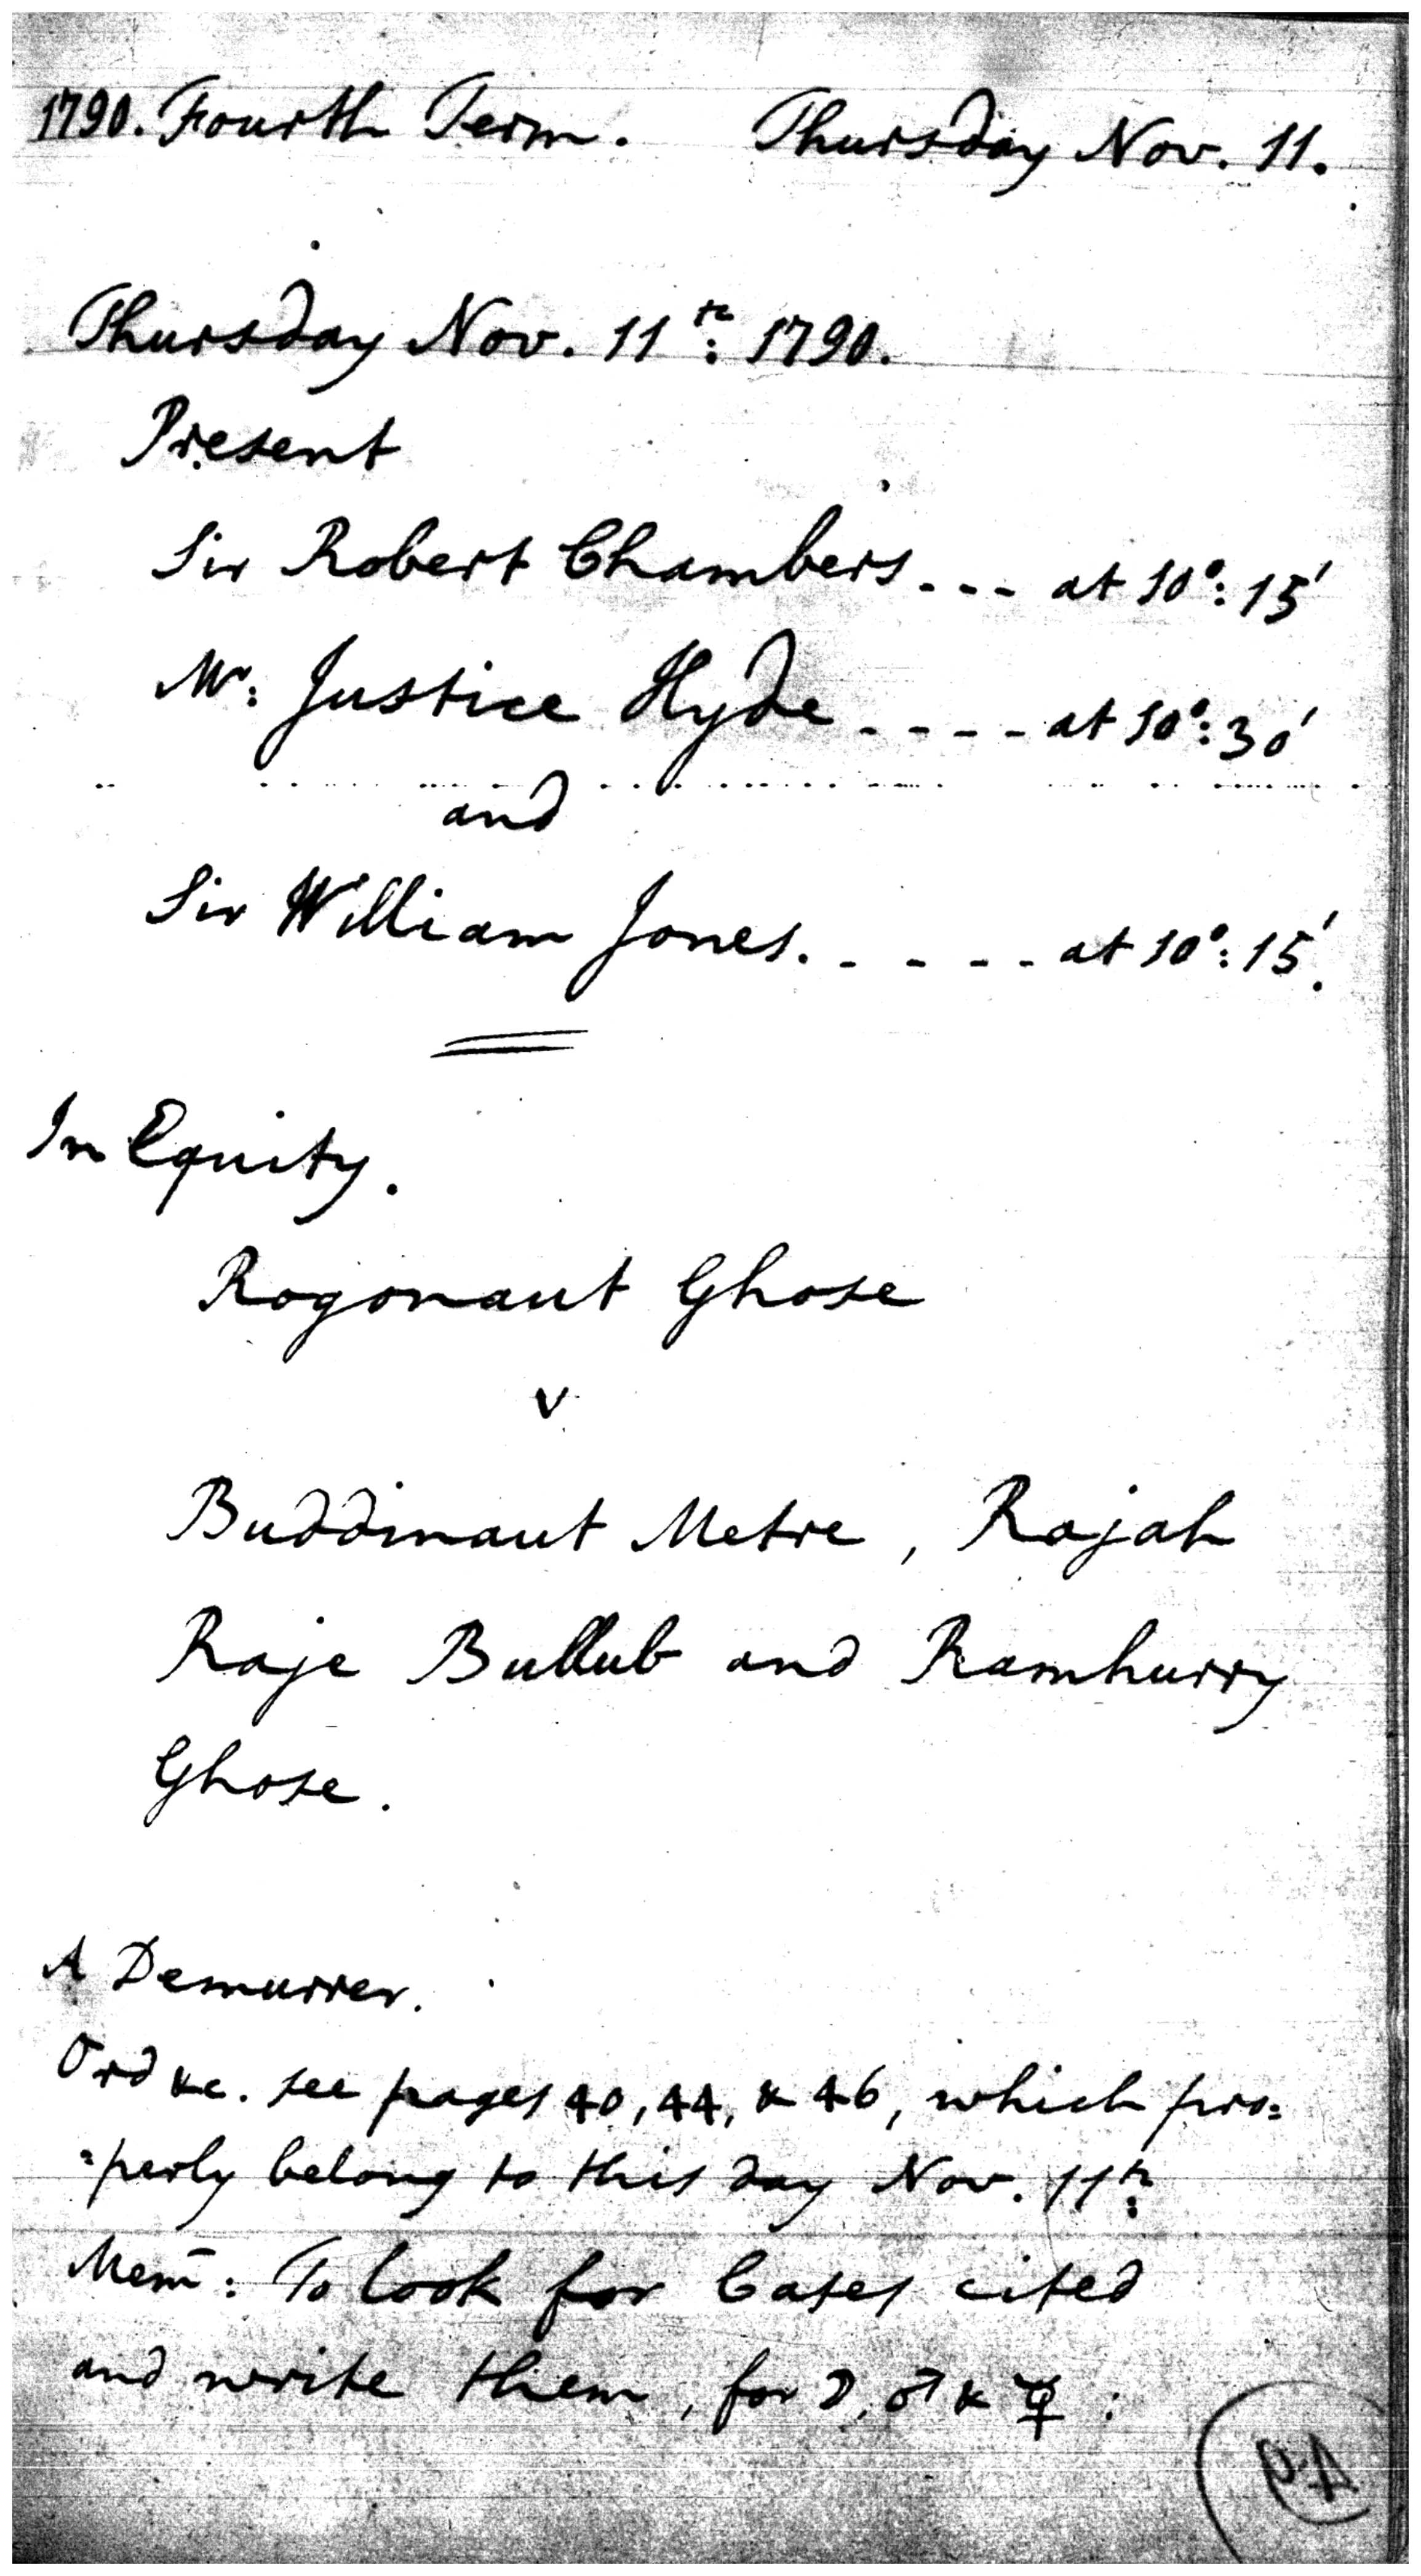 1790. Fourth Term. Thursday Nov. 11.
Thursday Nov. 11th: 1790.
Present
Sir Robert Chambers - - - at 10°: 15'
Mr: Justice Hyde - - - - at 10°: 30'
and
Sir William Jones. - - - - - at 10°: 15'.
In Equity.
Rogonaut Ghose
v
Buddinaut Metre, Rajah
Raje Bullub and Ramhurry
Ghose.
A Demurrer.
Ord &c. see pages 40, 44, & 46, which pro=
=perly belong to this day Nov. 11th:
Mem̄: To look for Cases cited
and write them, for ☽, ♂ & ☿: